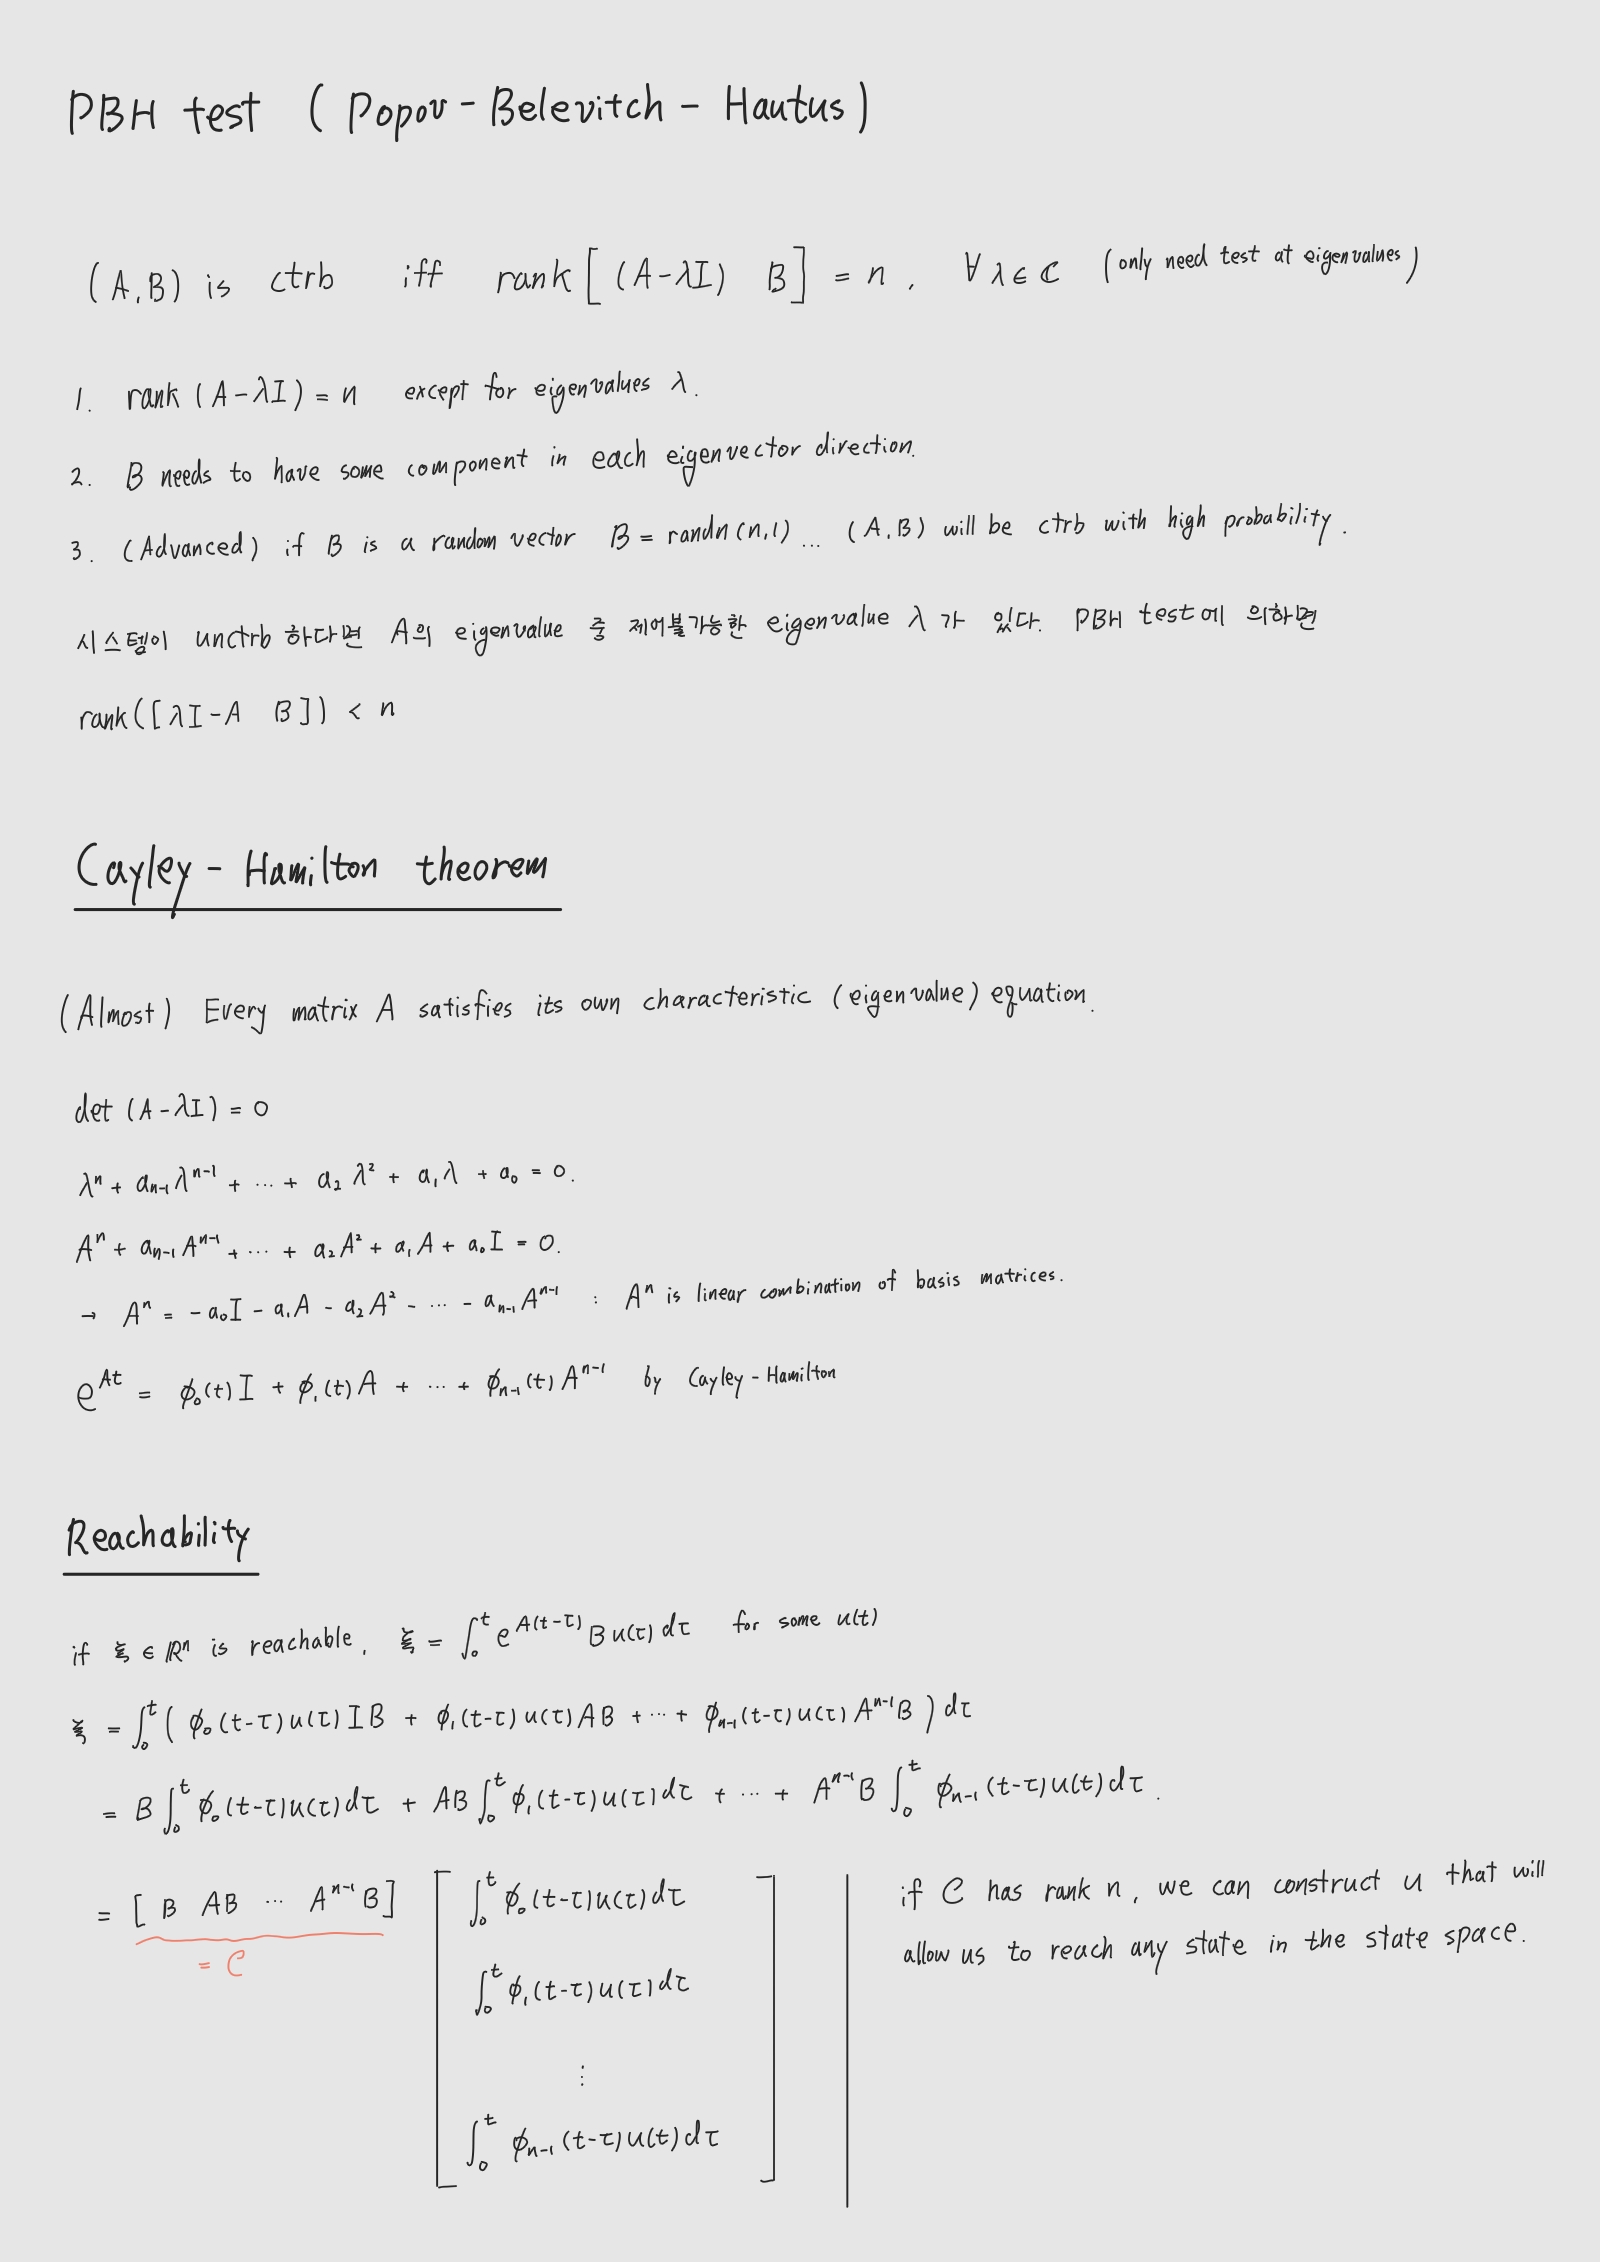 PBH test ( Popov - Belevitch - Hautus )
(A,B) is ctrb iff rank [ (A-λI) B ] = n , ∀ λ ∈ ℂ (only need test at eigenvalues)
1. rank (A-λI) = n except for eigenvalues λ.
2. B needs to have some component in each eigenvector direction.
3. (Advanced) if B is a random vector B = randn(n,1) ... (A,B) will be ctrb with high probability.
시스템이 unctrb 하다면 A의 eigenvalue 중 제어불가능한 eigenvalue λ 가 있다. PBH test에 의하면
rank([λI-A B]) < n
Cayley - Hamilton theorem
(Almost) Every matrix A satisfies its own characteristic (eigenvalue) equation.
det (A-λI) = 0
λⁿ + aₙ₋₁λⁿ⁻¹ + ⋯ + a₂λ² + a₁λ + a₀ = 0.
Aⁿ + aₙ₋₁Aⁿ⁻¹ + ⋯ + a₂A² + a₁A + a₀I = 0.
→ Aⁿ = -a₀I - a₁A - a₂A² - ⋯ - aₙ₋₁Aⁿ⁻¹ : Aⁿ is linear combination of basis matrices.
e^{At} = φ₀(t)I + φ₁(t)A + ⋯ + φₙ₋₁(t)Aⁿ⁻¹ by Cayley-Hamilton
Reachability
if ξ ∈ ℝⁿ is reachable, ξ = ∫₀ᵗ e^{A(t-τ)} B u(τ) dτ for some u(t)
ξ = ∫₀ᵗ ( φ₀(t-τ)u(τ)IB + φ₁(t-τ)u(τ)AB + ⋯ + φₙ₋₁(t-τ)u(τ)Aⁿ⁻¹B ) dτ
= B ∫₀ᵗ φ₀(t-τ)u(τ)dτ + AB ∫₀ᵗ φ₁(t-τ)u(τ)dτ + ⋯ + Aⁿ⁻¹B ∫₀ᵗ φₙ₋₁(t-τ)u(t)dτ.
= [ B AB ⋯ Aⁿ⁻¹B ]
= C
∫₀ᵗ φ₀(t-τ)u(τ)dτ
∫₀ᵗ φ₁(t-τ)u(τ)dτ
⋮
∫₀ᵗ φₙ₋₁(t-τ)u(t)dτ
if C has rank n, we can construct u that will
allow us to reach any state in the state space.